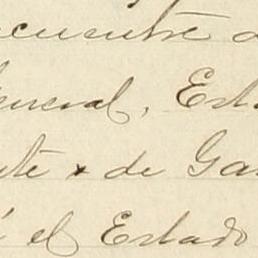 cuentre
neral, Est
te & de Ga
el Estado